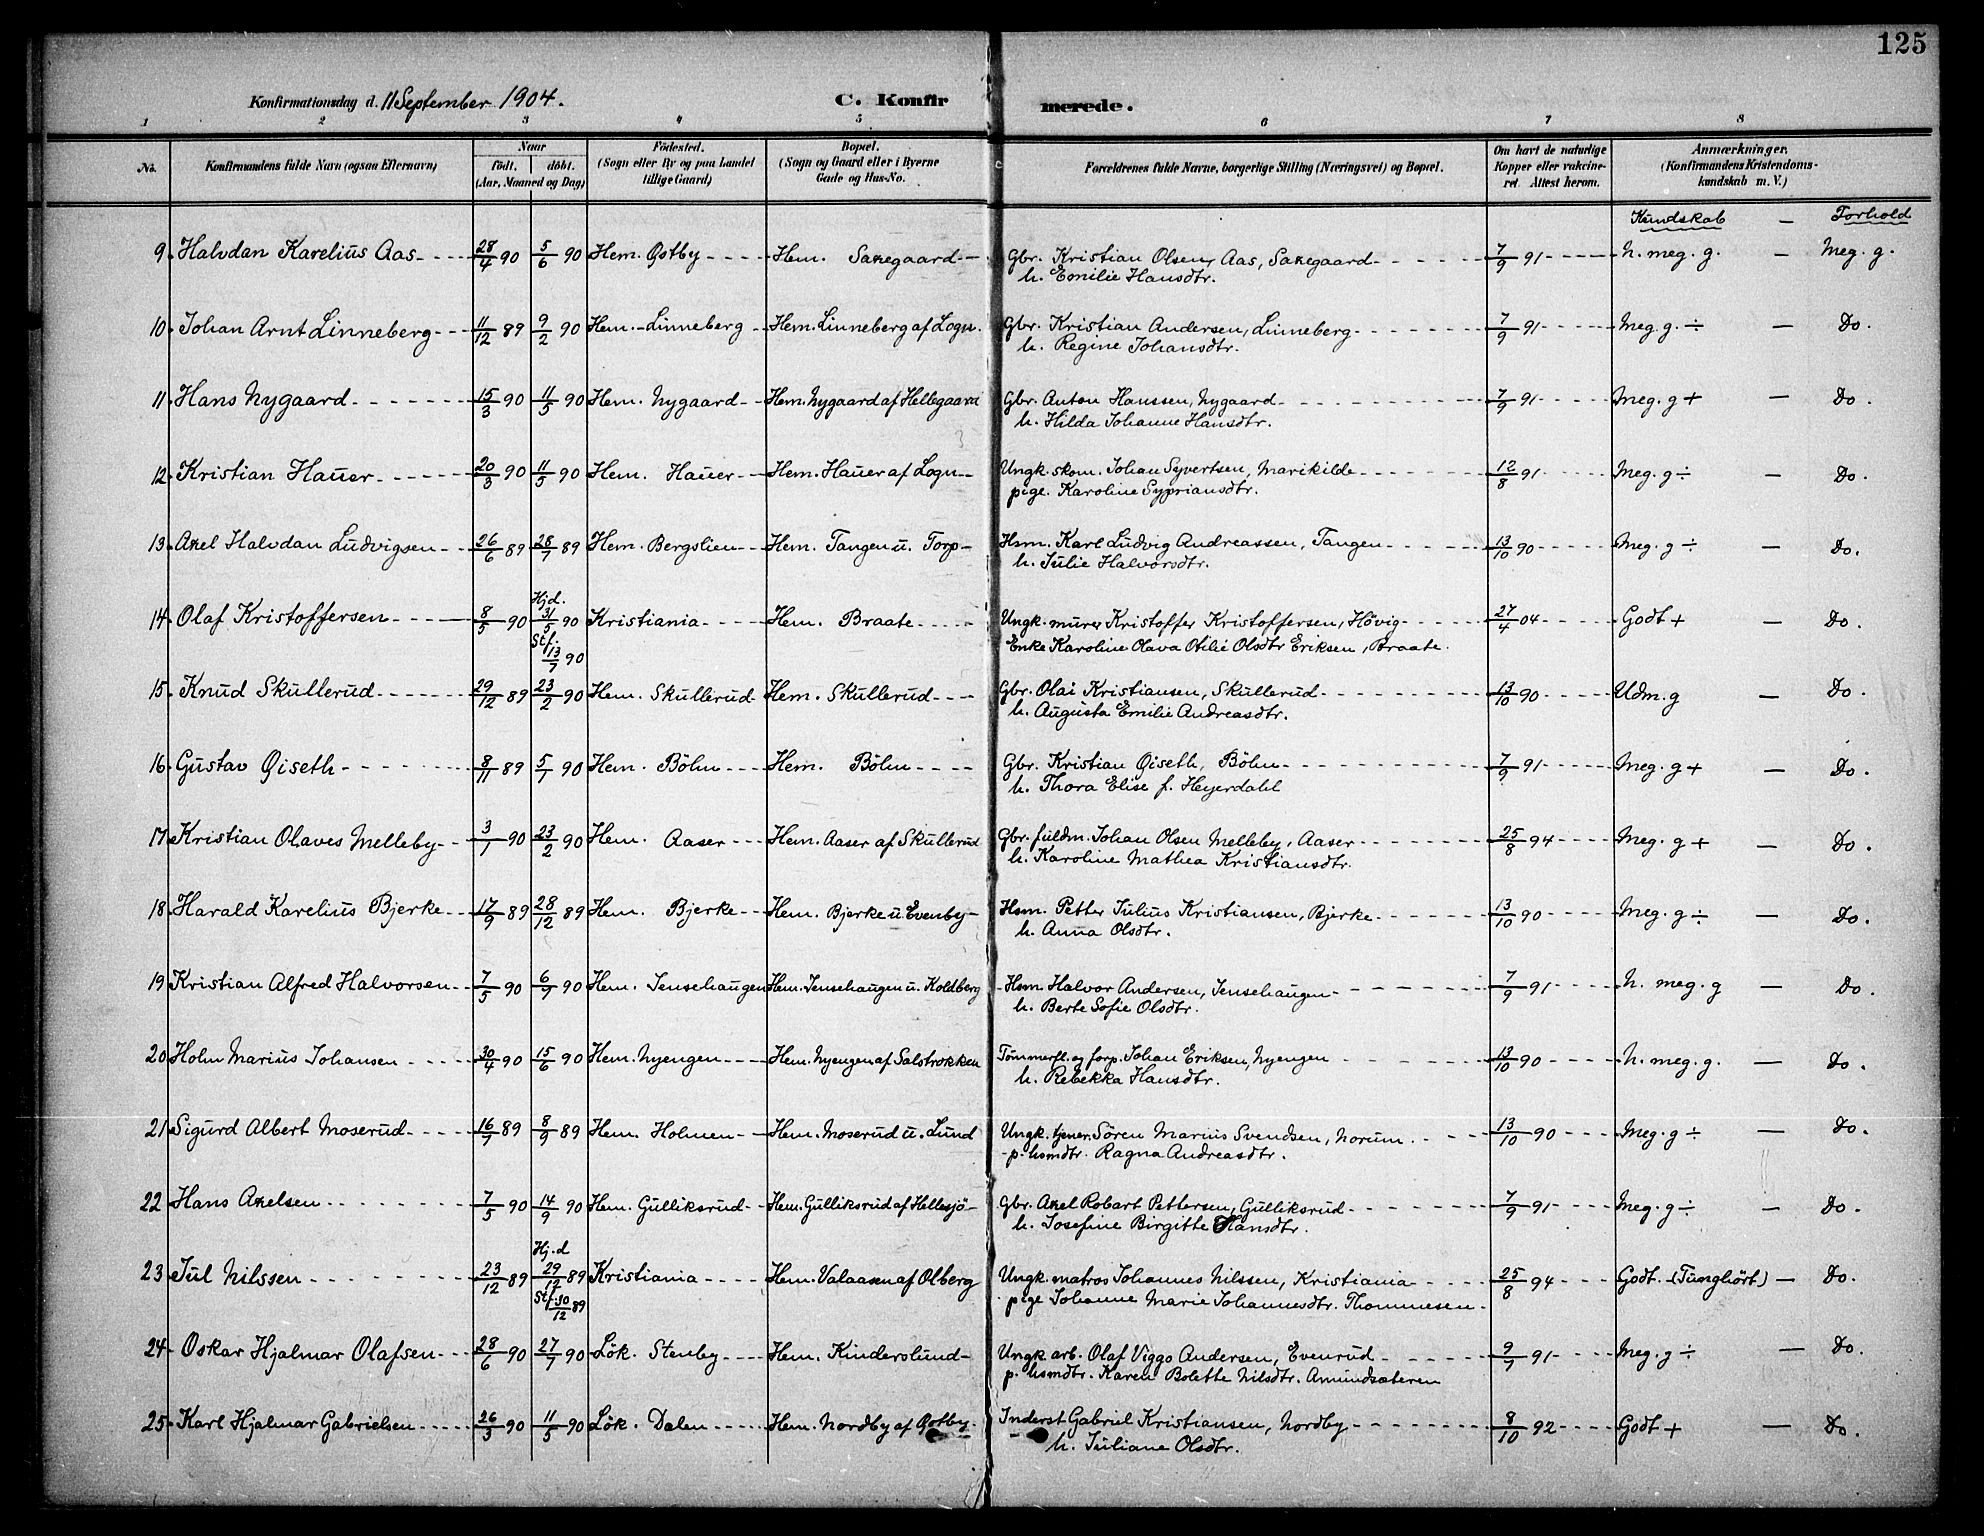 125
Konfirmationsdag d. 11 September 1904. C. Konfirmerede.
1 2 3 4 5 6 7 8
No. Konfirmandens fulde Navn (ogsaa Efternavn) Naar født, døbt. (Aar, Maaned og Dag) Fødested. (Sogn eller By og paa Landet tillige Gaard) Bopæl. (Sogn og Gaard eller i Byerne Gade og Hus-No. Forældrenes fulde Navne, borgerlige Stilling (Næringsvei) og Bopæl. Om havt de naturlige Kopper eller vakcineret Attest herom. Anmærkninger. (Konfirmandens Kristendomskundskab m. V.)
Kundskab — Forhold
9. Halvdan Karelius Aas 28/4 90 5/6 90 Hem. Østby Hem. Saxegaard Gbr. Kristian Olsen Aas, Saxegaard 7/9 91 N. meg. g. — Meg. g.
h. Emilie Hansdtr.
10. Johan Arnt Linneberg 11/12 89 9/2 90 Hem. Linneberg Hem. Linneberg af Logn. Gbr. Kristian Andersen, Linneberg 7/9 91 Meg. g. ÷ — Do.
h. Regine Johansdtr.
11. Hans Nygaard 15/3 90 11/5 90 Hem. Nygaard Hem. Nygaard af Hellegaard Gbr. Anton Hanssen, Nygaard 7/9 91 Meg. g + — Do.
h. Hilda Johanne Hansdtr.
12. Kristian Hauer 20/3 90 11/5 90 Hem. Hauer Hem. Hauer af Logn Ungk. skom. Johan Syvertsen, Marikilde 12/8 91 Meg. g ÷ — Do.
pige. Karoline Sypriansdtr.
13. Axel Halvdan Ludvigsen 26/6 89 28/7 89 Hem. Bergslien Hem. Tangen u. Torp Hsm. Karl Ludvig Andreassen, Tangen 13/10 90 Meg. g ÷ — Do.
h. Julie Halvorsdtr.
14. Olaf Kristoffersen 8/5 90 Hjd. 31/5 90 Stf. 13/7 90 Kristiania Hem. Braate Ungk. murer Kristoffer Kristoffersen, Høvig 27/4 04 Godt + — Do.
Enke Karoline Olava Otilie Olsdtr Eriksen, Braate.
15. Knud Skullerud 29/12 89 23/2 90 Hem. Skullerud Hem. Skullerud Gbr. Olai Kristiansen, Skullerud 13/10 90 Udm. g — Do.
h. Augusta Emilie Andreasdtr.
16. Gustav Øiseth 8/11 89 5/1 90 Hem. Bøhn Hem. Bøhn Gbr. Kristian Øiseth, Bøhn 7/9 91 Meg. g + — Do.
h. Thora Elise f. Heyerdahl
17. Kristian Olaves Melleby 3/1 90 23/2 90 Hem. Aaser Hem. Aaser af Skullerud Gbr. fuldm. Johan Olsen Melleby, Aaser 25/8 94 Meg. g + — Do.
h. Karoline Mathea Kristiansdtr.
18. Harald Karelius Bjerke 17/9 89 28/12 89 Hem. Bjerke Hem. Bjerke u. Evenby Hsm. Petter Julius Kristiansen, Bjerke 13/10 90 Meg. g ÷ — Do.
h. Anna Olsdtr.
19. Kristian Alfred Halvorsen 7/5 90 6/7 90 Hem. Jensehaugen Hem. Jensehaugen u. Koldberg Hsm Halvor Andersen, Jensehaugen 7/9 91 N. meg. g — Do.
h. Berte Sofie Olsdtr.
20. Holm Marius Johansen 30/4 90 15/6 90 Hem. Nyengen Hem. Nyengen af Salstrokken Tømmerfl. og forp. Johan Eriksen, Nyengen 13/10 90 N. meg. g. — Do.
h. Rebekka Hansdtr.
21 Sigurd Albert Moserud 16/7 89 8/9 89 Hem. Holmen Hem. Moserud u. Lund Ungk. tjener. Søren Marius Svendsen, Norum 13/10 90 Meg. g ÷ — Do.
p. hsmdtr. Ragna Andreasdtr.
22 Hans Axelsen 7/5 90 14/9 90 Hem. Gulliksrud Hem. Gulliksrud af Hellesjø Gbr. Axel Robart Pettersen, Gulliksrud 7/9 91 Meg. g ÷ — Do.
h. Josefine Birgitte Hansdtr.
23 Jul Nilssen 23/12 89 Hj.d 29/12 89 Stf. 30/12 89 Kristiania Hem. Valaasen af Olberg Ungk. matros Johannes Nilssen, Kristiania 25/8 94 Godt. (Tunghørt) — Do.
pige Johanne Marie Johannesdtr. Thommesen
24 Oskar Hjalmar Olafsen 28/6 90 27/7 90 Løk. Stenby Hem. Kinderslund Ungk. arb. Olaf Viggo Andersen, Evenrud 9/7 91 Meg. g ÷ — Do.
p. hsmdtr. Karen Bolette Nilsdtr. Amundsæteren
25. Karl Hjalmar Gabrielsen 26/3 90 11/5 90 Løk. Dalen Hem. Nordby af Østby Inderst Gabriel Kristiansen, Nordby 8/10 92 Godt + — Do.
h. Juliane Olsdtr.